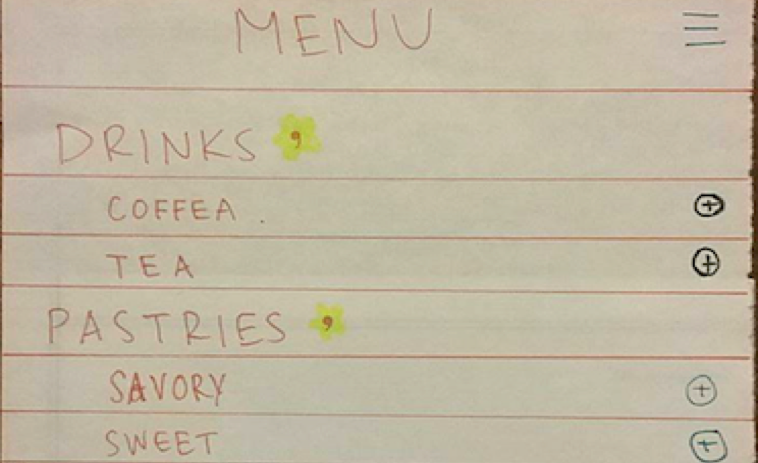 MENU
DRINKS
COFFEA
TEA
PASTRIES
SAVORY
SWEET